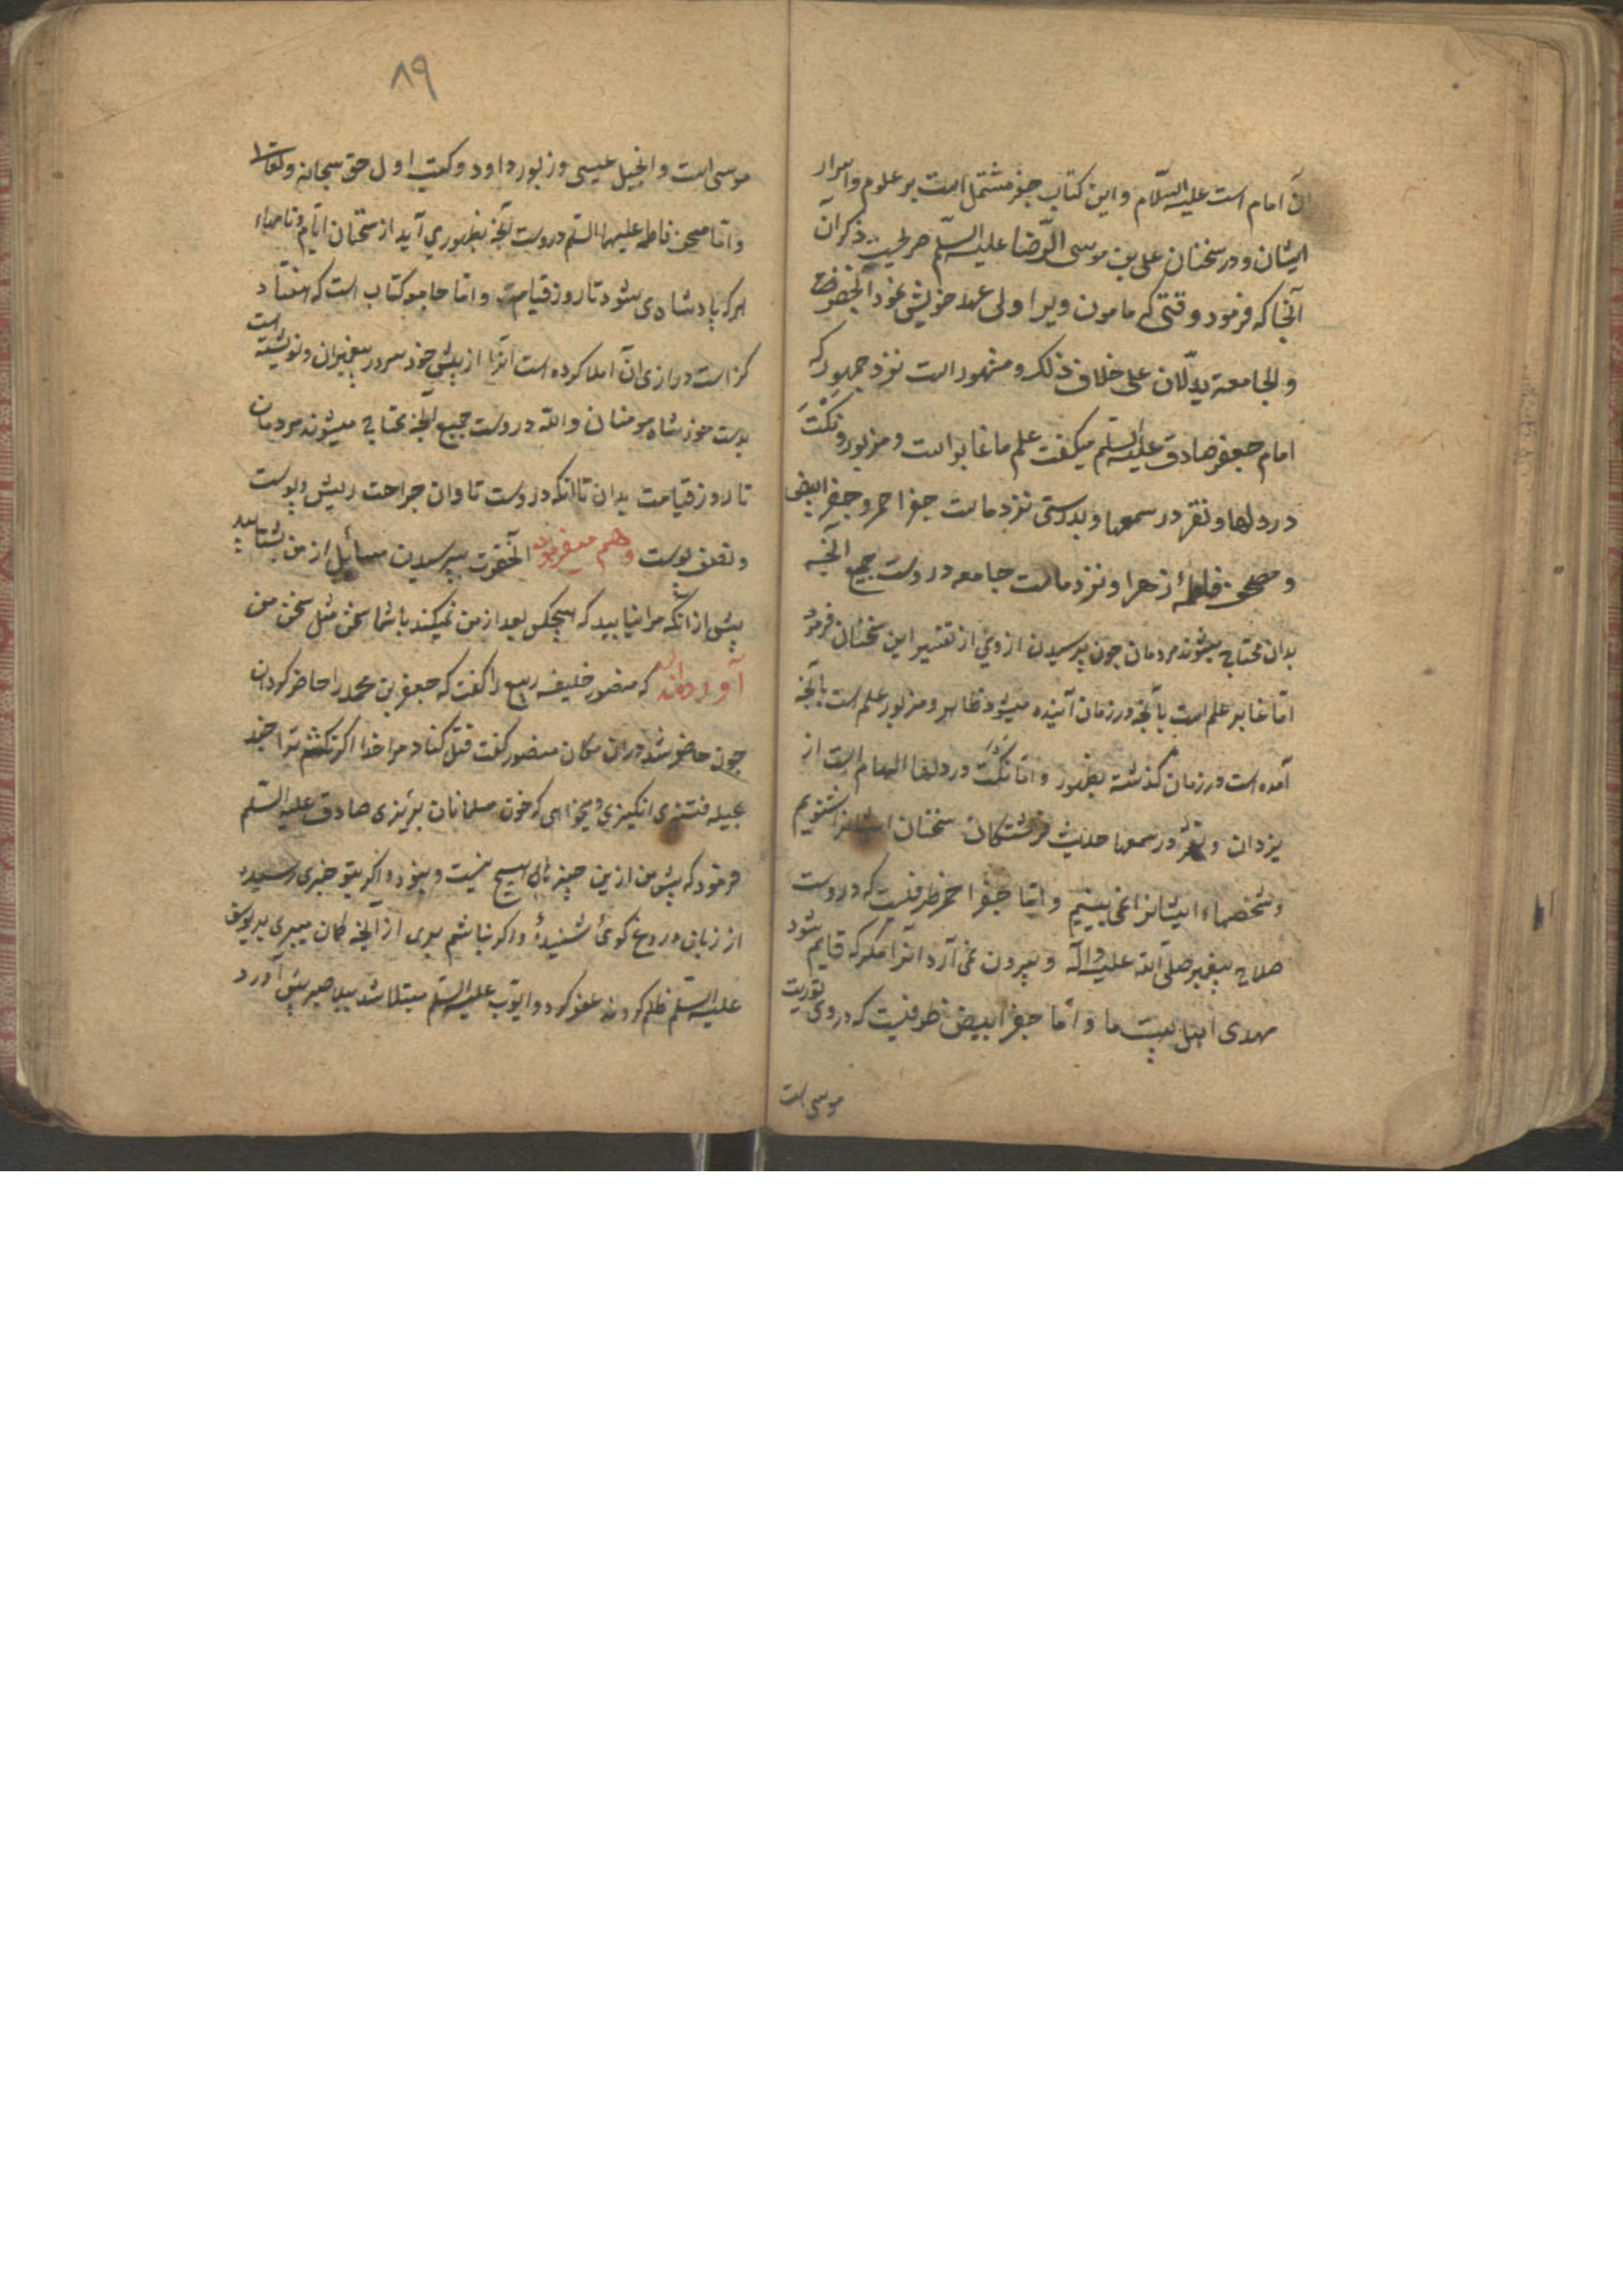 آن امام است علیه السّلام و این کتاب جفر مشتمل است بر علوم و اسرار
ایشان و در سخنان علی بن موسی الرّضا علیه السّلم صریحیت ذکر آن
آنجا که فرمود وقتی که مامون ویرا ولی عهد خویش نمود الجفر
والجامعة یدلّان علی خلاف ذلک و مشهور است نزد جمهور که
امام جعفر صادق علیه السّلم میگفت علم ما غابر است و مزبور و نَکْت
در دلها و نقر در سمعها و بدرستی نزد ماست جفر احمر و جفر ابیض
و مصحف فاطمهٔ زهرا و نزد ماست جامعه دروست جمیع آنچه
بدان محتاج میشوند مردمان چون پرسیدن از وی از تفسیر این سخنان فرمود
امّا غابر علم است بآنچه در زمان آینده میشود ظاهر و مزبور علم است بآنچه
آمده است در زمان گذشته بظهور و امّا نکت در دلها الهام است از
یزدان و نقر در سمعها حدیث فرشتگان سخنان ایشانرا شنویم
و شخصهاء ایشانرا نمی بینیم و امّا جفر احمر ظرفیست که دروست
صلاح پیغمبر صلّی الله علیه وآله و بیرون نمی آرد آنرا مگر که قایم شود
مهدی اهل بیت ما و امّا جفر ابیض ظرفیست که دروی توریت
موسی است
۸۹
موسی است و انجیل عیسی و زبور داود و کتب اول حق سبحانه وتعالی
و امّا مصحف فاطمه علیها السّلم دروست آنچه بظهور می آید از سخنان ایّام و نامهاء
هرکه پادشاه می شود تا روز قیامت و امّا جامعه کتاب است که هفتاد
گز است درازی آن املا کرده است آنرا از پیش خود سرور پیغمبران و نوشته است
بدست خود شاه مومنان والله دروست جمیع آنچه محتاج میشوند مردمان
تا روز قیامت بدان تا آنکه دروست تاوان جراحت ریش و پوست
و نصف پوست و هم میفرمود آنحضرت بپرسیدن مسائل از من بشتابید
پیش از آنکه مرا نیابید که هیچکس بعد از من نمیکند با شما سخن مثل سخن من
آورده اند که منصور خلیفه ربیع را گفت که جعفر بن محمد را حاضر گردان
چون حاضر شد در آن مکان منصور گفت قتل کناد مرا خدا اگر نکشم ترا چند
بحیله فتنه می انگیزی و میخواهی که خون مسلمانان بریزی صادق علیه السّلم
فرمود که پیش من ازین چیزهای هیچ نیست و نبوده و اگر بتو خبری رسیده
از زبان دروغ گوئی شنیدهٔ و اگر نباشم بری از آنچه گمان میبری بر یوسف
علیه السّلم ظلم کردند عفو کرد و ایّوب علیه السّلم مبتلا شد ببلا صبر پیش آورد